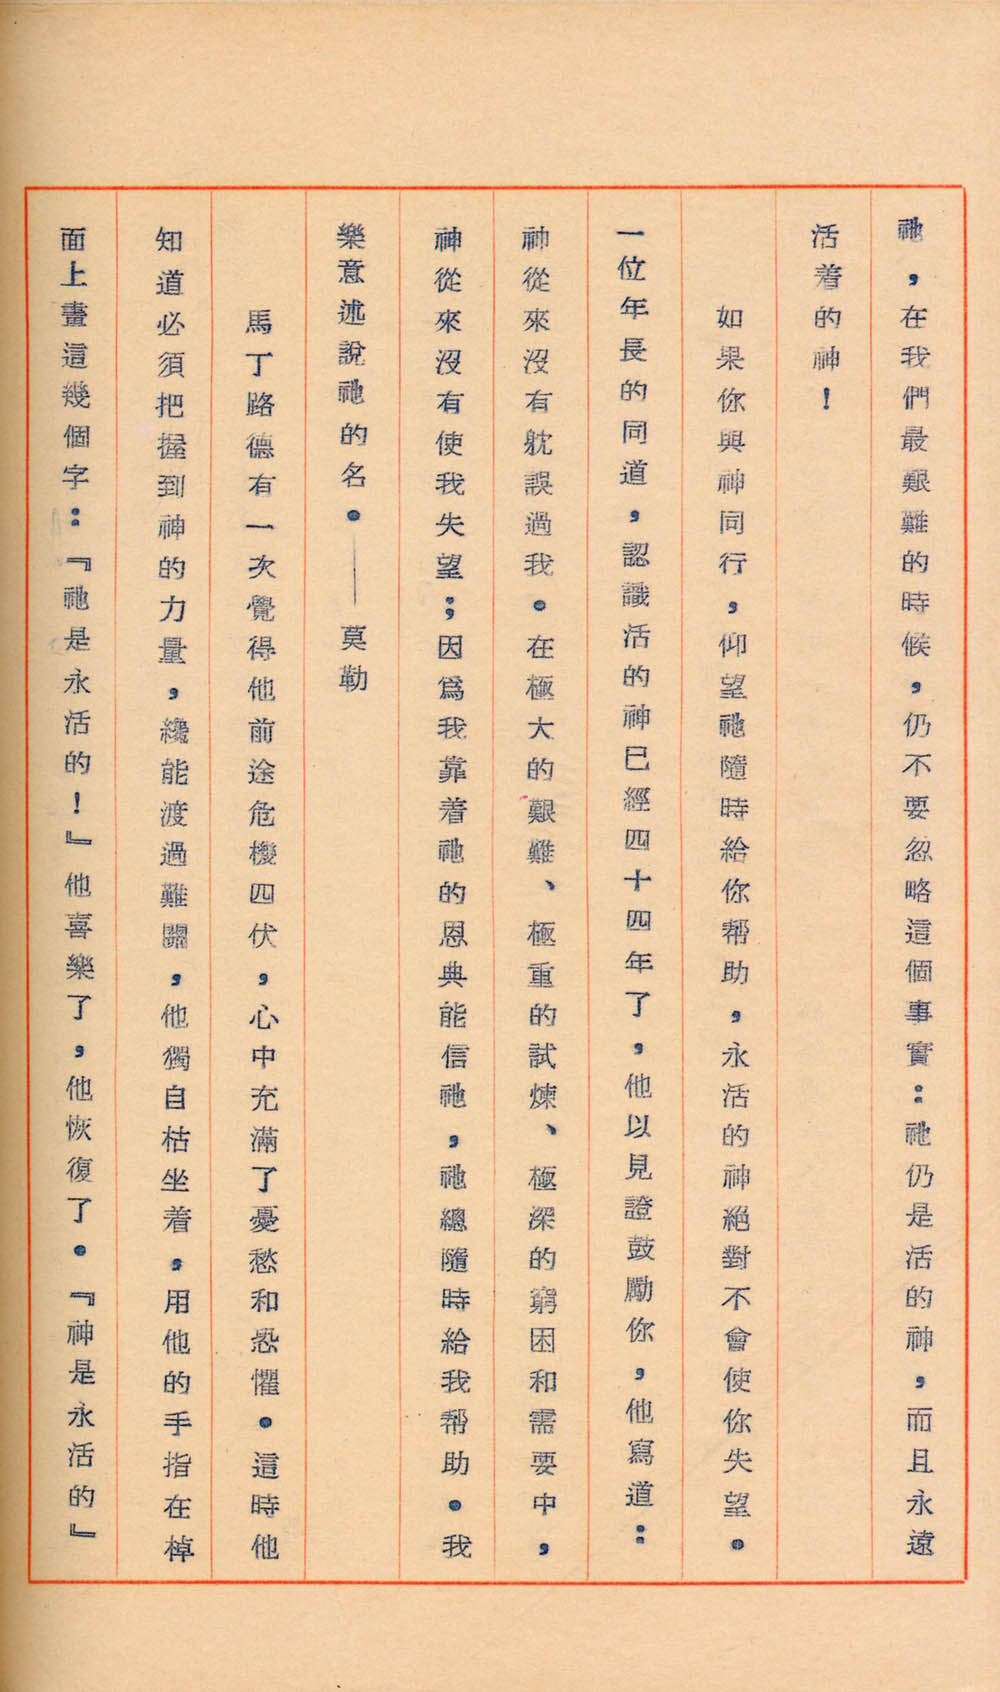 祂，在我們最艱難的時候，仍不要忽略這個事實：祂仍是活的神，而且永遠
活着的神！
如果你與神同行，仰望祂隨時給你帮助，永活的神絕對不會使你失望。
一位年長的同道，認識活的神已經四十四年了，他以見證鼓勵你，他寫道：
神從來沒有躭誤過我。在極大的艱難、極重的試煉、極深的窮困和需要中，
神從來沒有使我失望；因爲我靠着祂的恩典能信祂，祂總隨時給我帮助。我
樂意述說祂的名。——莫勒
馬丁路德有一次覺得他前途危機四伏，心中充滿了憂愁和恐懼。這時他
知道必須把握到神的力量，纔能渡過難關，他獨自枯坐着，用他的手指在棹
面上畫這幾個字：『祂是永活的！』他喜樂了，他恢復了。『神是永活的』